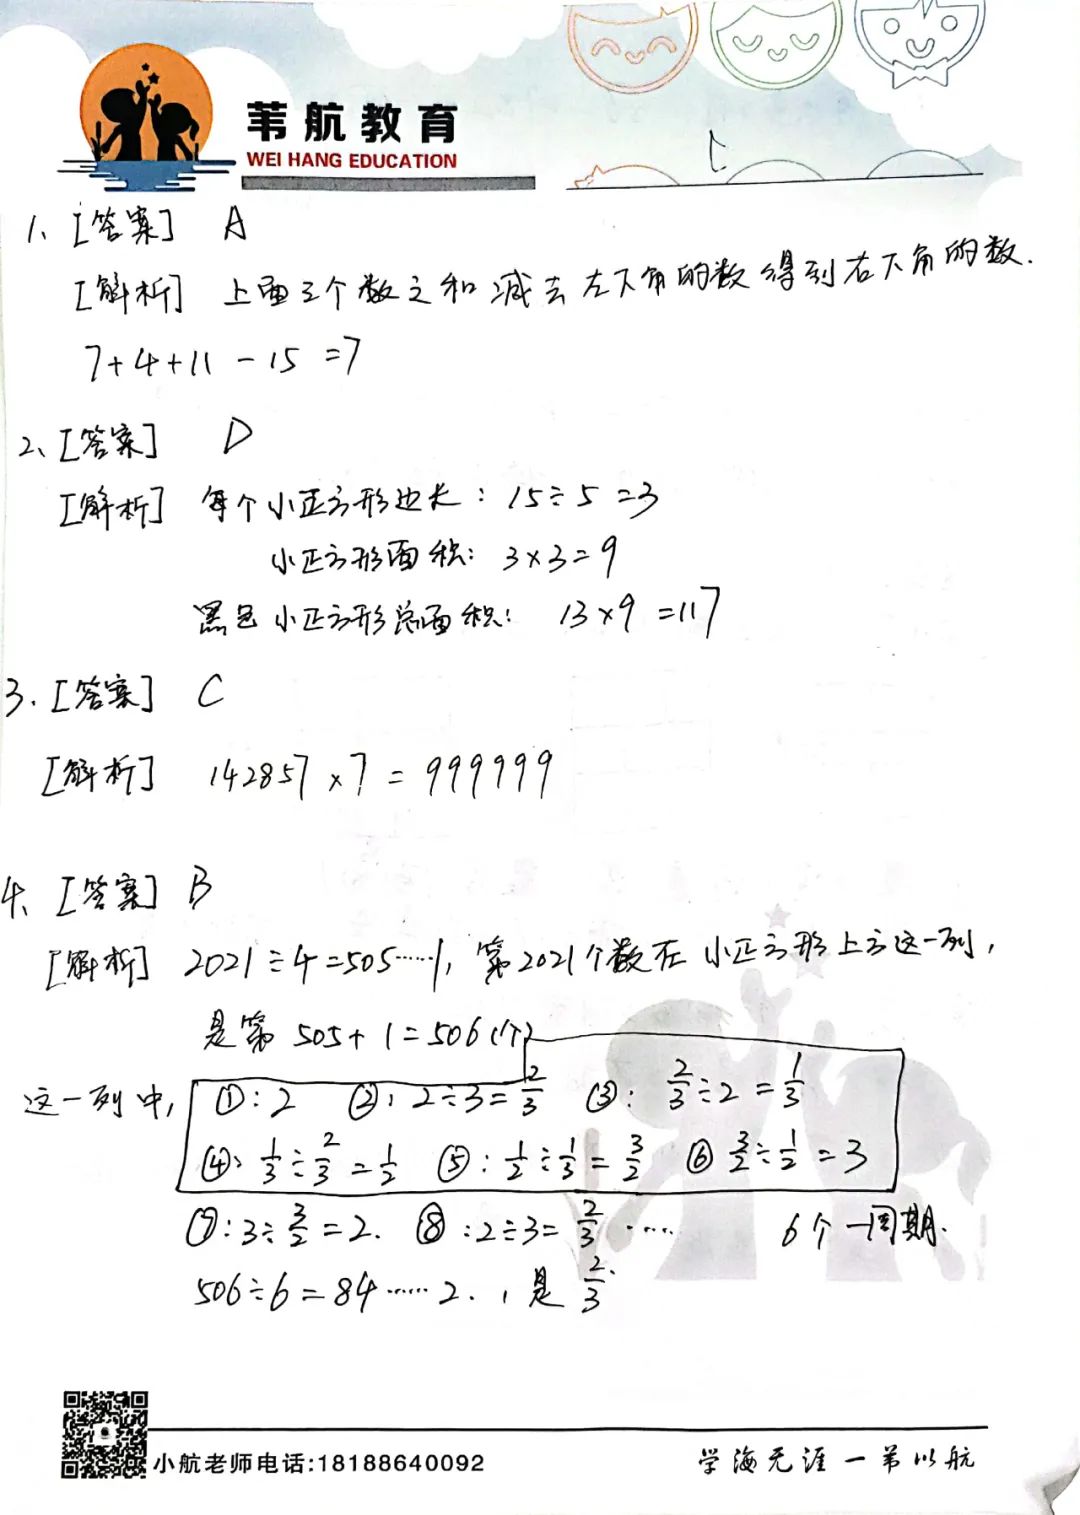 苇航教育
WEI HANG EDUCATION
1、[答案] A
[解析] 上面3个数之和减去左下角的数得到右下角的数.
7+4+11-15=7
2、[答案] D
[解析] 每个小正方形边长:15÷5=3
小正方形面积:3×3=9
黑色小正方形总面积:13×9=117
3.[答案] C
[解析] 142857×7=999999
4、[答案] B
[解析] 2021÷4=505……1,第2021个数在小正方形上方这一列,
是第 505+1=506(个)
这一列中, ①:2 ②:2÷3=2/3 ③:2/3÷2=1/3
④:1/3÷2/3=1/2 ⑤:1/2÷1/3=3/2 ⑥3/2÷1/2=3
⑦:3÷3/2=2. ⑧:2÷3=2/3 …… 6个一周期.
506÷6=84……2.,是2/3.
小航老师电话:18188640092
学海无涯一苇以航